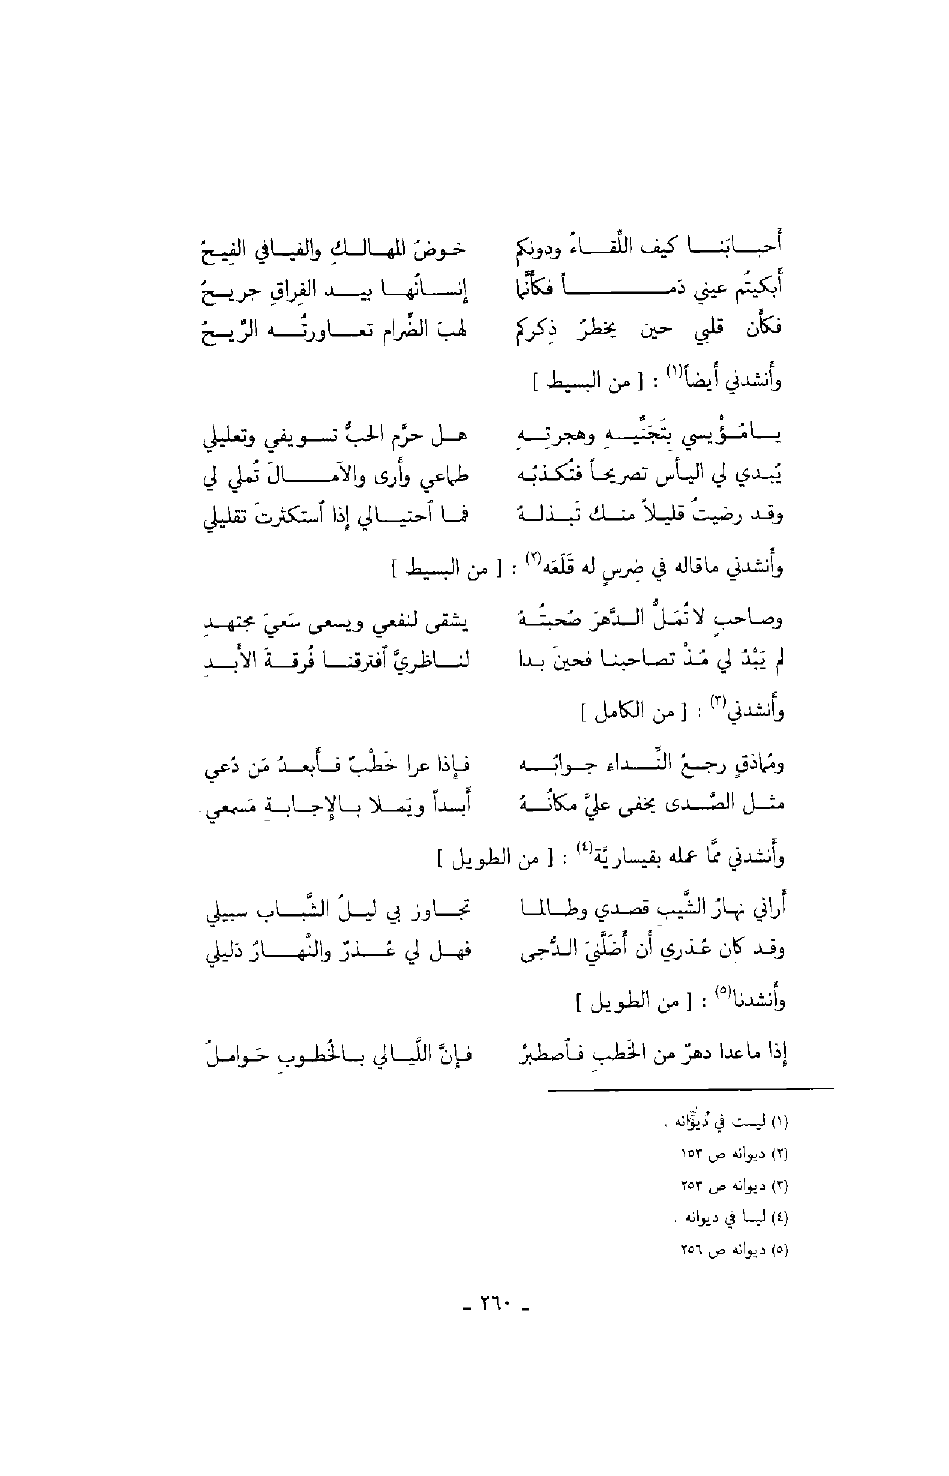 أحبابَنا كيف اللّقاءُ ودونكم خوضُ المهالكِ والفيافي الفيحُ
أبكيتُم عيني دَماً فكأنّما إنسانُها بيد الفِراقِ جريحُ
فكأن قلبي حين يخطرُ ذِكركم لهبَ الضِّرامِ تعاورتُه الرِّيحُ
وأنشدني أيضاً(١) : [ من البسيط ]
يا مُؤْيسي بتَجَنِّيه وهجرتِه هل حرَّم الحبُّ تسويفي وتعليلي
يُبدي لي اليأس تصريحاً فتُكذبُه طماعي وأرى والآمالَ تُملي لي
وقد رضيتُ قليلاً منك تَبذلهُ فما اَحتيالي إذا اَستكثرتَ تقليلي
وأنشدني ماقاله في ضِرسٍ له قَلَعَه(٢) : [ من البسيط ]
وصاحبٍ لا تُمَلُّ الدَّهرَ صُحبتُهُ يشقى لنفعي ويسعى سَعيَ مجتهدِ
لم يَبْدُ لي مُذْ تصاحبنا فحينَ بدا لناظريَّ اَفترقنا فُرقةَ الأبدِ
وأنشدني(٣) : [ من الكامل ]
ومُماذقٍ رجعُ النِّداء جوابُه فإذا عرا خَطْبٌ فأبعدُ مَن دُعي
مثل الصَّدى يخفى عليَّ مكانُهُ أبداً ويَملا بالإجابةِ مَسمعي
وأنشدني ممَّا عمله بقيساريَّة(٤) : [ من الطويل ]
أراني نهارُ الشَّيبِ قصدي وطالما تجاوز بي ليلُ الشَّباب سبيلي
وقد كان عُذري أن أضَلَّنيَ الدُّجى فهل لي عُذرٌ والنَّهارُ دَليلي
وأنشدنا(٥) : [ من الطويل ]
إذا ما عدا دهرٌ من الخَطبِ فاَصطبِرْ فإنَّ اللَّيالي بالخُطوبِ حَواملُ
(١) ليست في ديوانه .
(٢) ديوانه ص ١٥٣
(٣) ديوانه ص ٢٥٣
(٤) ليسا في ديوانه .
(٥) ديوانه ص ٢٥٦
ـ ٢٦٠ ـ